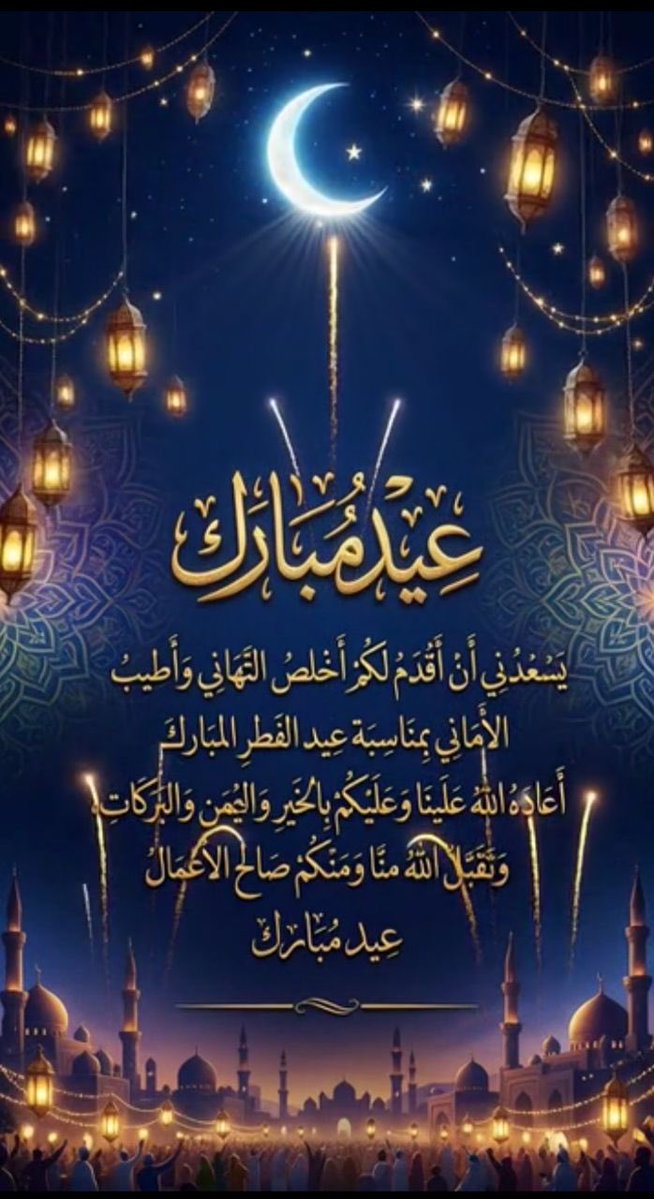 عِيدْ مُبَارَك
يَسْعُدُنِي أَنْ أَقَدَمُ لَكُمْ أَخْلصُ التَّهَانِي وَأَطيبُ
الأَمَانِي بِمنَاسِبَة عِيد الفَطرِ المبَاركَ
أَعَادَهُ اللهُ عَلَينَا وَعَلَيْكُمْ بِالخَيرِ وَاليُمَن وَالبَرَكَاتِ،
وَتَقَبَّلُ اللهُ منَّا وَمَنكُمْ صَالح الأَعْمَالُ
عِيد مُبَارك